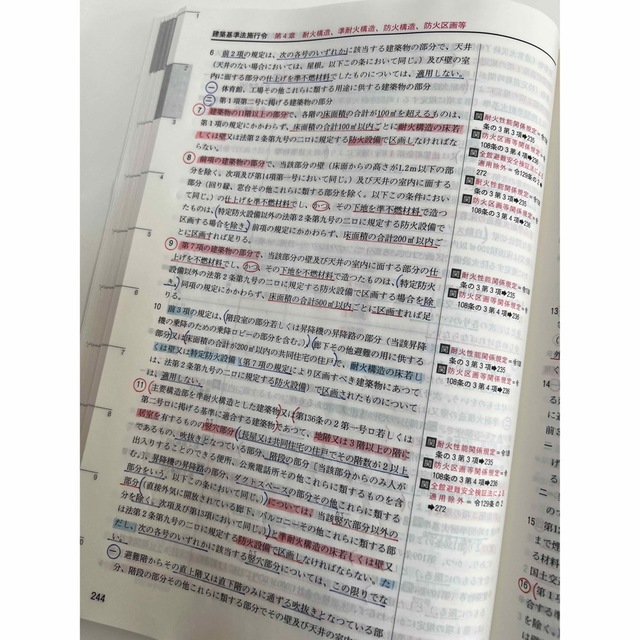 建築基準法施行令 第4章 耐火構造、準耐火構造、防火構造、防火区画等
6 前2項の規定は、次の各号のいずれかに該当する建築物の部分で、天井
(天井のない場合においては、屋根。以下この条において同じ。)及び壁の室
内に面する部分の仕上げを準不燃材料でしたものについては、適用しない。
一 体育館、工場その他これらに類する用途に供する建築物の部分
二 第1項第二号に掲げる建築物の部分
7 建築物の11階以上の部分で、各階の床面積の合計が100㎡を超えるものは、
第1項の規定にかかわらず、床面積の合計100㎡以内ごとに耐火構造の床若
しくは壁又は法第2条第九号の二ロに規定する防火設備で区画しなければな
らない。
8 前項の建築物の部分で、当該部分の壁(床面からの高さが1.2m以下の部
分を除く。次項及び第14項第一号において同じ。)及び天井の室内に面する
部分(回り縁、窓台その他これらに類する部分を除く。以下この条において
同じ。)の仕上げを準不燃材料でし、かつ、その下地を準不燃材料で造つ
たものは、(特定防火設備以外の法第2条第九号の二ロに規定する防火設備で
区画する場合を除き、)前項の規定にかかわらず、床面積の合計200㎡以内ご
とに区画すれば足りる。
9 第7項の建築物の部分で、当該部分の壁及び天井の室内に面する部分の仕
上げを不燃材料でし、かつ、その下地を不燃材料で造つたものは、(特定防火
設備以外の法第2条第九号の二ロに規定する防火設備で区画する場合を除
き、)同項の規定にかかわらず、床面積の合計500㎡以内ごとに区画すれば足
りる。
10 前3項の規定は、階段室の部分若しくは昇降機の昇降路の部分(当該昇降
機の乗降のための乗降ロビーの部分を含む。)、廊下その他避難の用に供する
部分又は床面積の合計が200㎡以内の共同住宅の住戸で、耐火構造の床若し
くは壁又は特定防火設備(第7項の規定により区画すべき建築物にあつて
は、法第2条第九号の二ロに規定する防火設備)で区画されたものについて
は、適用しない。
11 主要構造部を準耐火構造とした建築物又は第136条の2第一号ロ若しくは
第二号ロに掲げる基準に適合する建築物であつて、地階又は3階以上の階に
居室を有するものの竪穴部分(長屋又は共同住宅の住戸でその階数が2以上
であるもの、吹抜きとなつている部分、階段の部分(当該部分からのみ人が
出入りすることのできる便所、公衆電話所その他これらに類するものを含
む。)、昇降機の昇降路の部分、ダクトスペースの部分その他これらに類する
部分をいう。以下この条において同じ。)については、当該竪穴部分以外の
部分(直接外気に開放されている廊下、バルコニーその他これらに類する部
分を除く。次項及び第13項において同じ。)と準耐火構造の床若しくは壁又
は法第2条第九号の二ロに規定する防火設備で区画しなければならない。た
だし、次の各号のいずれかに該当する竪穴部分については、この限りでな
い。
一 避難階からその直上階又は直下階のみに通ずる吹抜きとなつている部
分、階段の部分その他これらに類する部分でその壁及び天井の室内に面
244
関 耐火性能関係規定=令108
条の3第3項➡235
関 防火区画等関係規定=令
108条の3第4項➡235
関 全館避難安全検証法による
適用除外=令129条の2➡
272
関 耐火性能関係規定=令108
条の3第3項➡235
関 防火区画等関係規定=令
108条の3第4項➡235
関 耐火性能関係規定=令108
条の3第3項➡235
関 防火区画等関係規定=令
108条の3第4項➡235
関 耐火性能関係規定=令108
条の3第3項➡235
関 防火区画等関係規定=令
108条の3第4項➡235
関 耐火性能関係規定=令108
条の3第3項➡235
関 防火区画等関係規定=令
108条の3第4項➡235
関 全館避難安全検証法による
適用除外=令129条の2
➡272
13
14
15
16